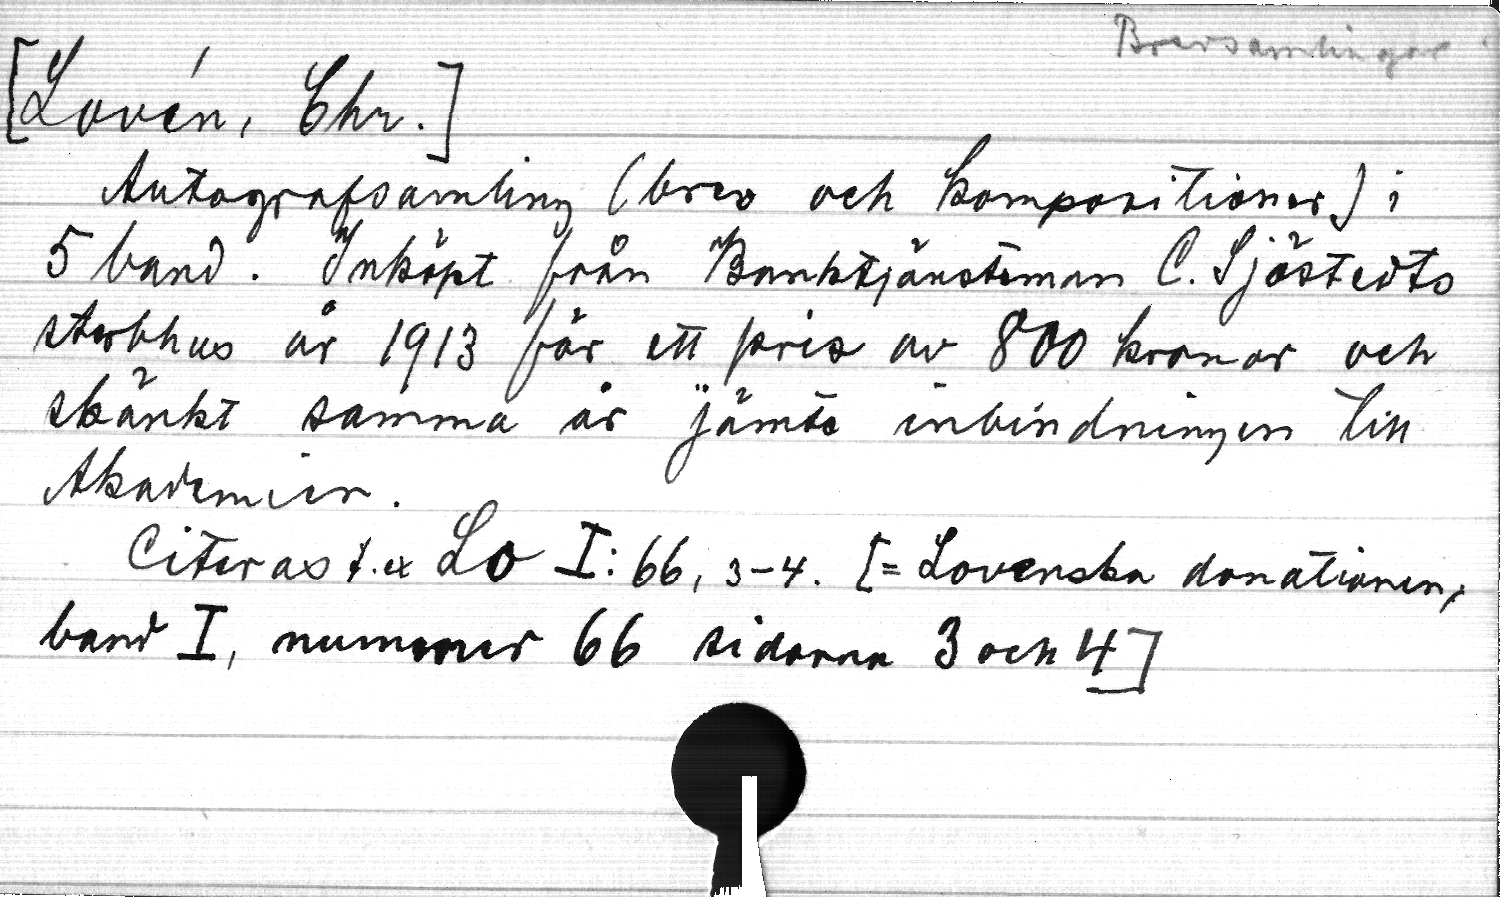 Brevsamlingar
[Lovén, Chr.]
Autografsamling (brev och kompositioner) i
5 band. Inköpt från Banktjänsteman C. Sjöstedts
sterbhus år 1913 för ett pris av 800 kronor och
skänkt samma år jämte inbindningen till
Akademien.
Citeras t.ex Lo I: 66, 3-4. [= Lovenska donationen,
band I, nummer 66 sidorna 3 och 4]